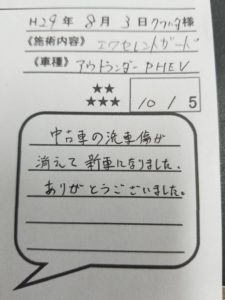 H29年 8月 3日 様
《施術内容》 エクセレントガード
《車種》 アウトランダーPHEV
★★
★★★
10 / 5
中古車の洗車傷が
消えて新車になりました.
ありがとうございました。